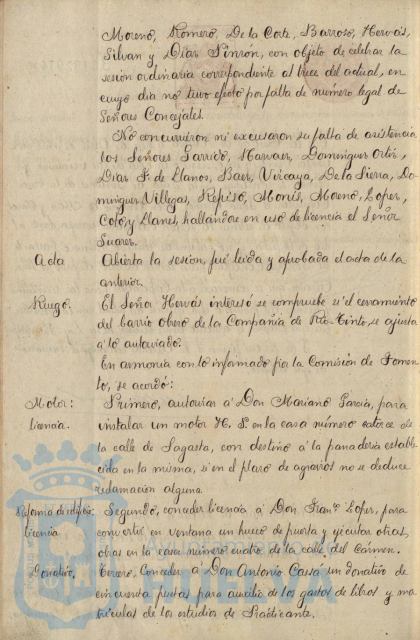 Moreno, Romero, De la Corte, Barroso, Hervás,
Silvan y Dias Pinzon, con objeto de celebrar la
sesión ordinaria correspondiente al trece del actual, en
cuyo dia no tuvo efecto por falta de número legal de
Señores Concejales.
No concurrieron ni excusaron su falta de asistencia
los Señores Garrido, Narvaez, Dominguez Ortiz,
Dias F. de Llanos, Baez, Vizcaya, De la Sierra, Do-
minguez Villegas, Repiso, Monís, Moreno, Lopez,
Coto y Llanes, hallandose en uso de licencia el Señor
Suarez.
Acta Abierta la sesión, fué leida y aprobada el acta de la
anterior.
Ruego. El Señor Hervás interesó se compruebe si el cerramiento
del barrio obrero de la Compañia de Rio-Tinto, se ajusta
a lo autorizado.
En armonia con lo informado por la Comisión de Fomen-
to, se acordó:
Motor: Primero, autorizar á Don Mariano García, para
licencia. instalar un motor H. P. en la casa número catorce de
la calle de Sagasta, con destino á la panaderia estable-
cida en la misma, si en el plazo de agravios no se deduce
reclamación alguna.
Reforma de edificio: Segundo, conceder licencia á Don Franco Lopez, para
licencia convertir en ventana un hueco de puerta y ejecutar otras
obras en la casa número cuatro de la calle del Carmen.
Donativo, Tercero, Conceder á Don Antonio Cassa un donativo de
cincuenta pesetas para auxilio de los gastos de libros y ma-
triculas de los estudios de Practicante.
Ayuntamiento de
HUELVA